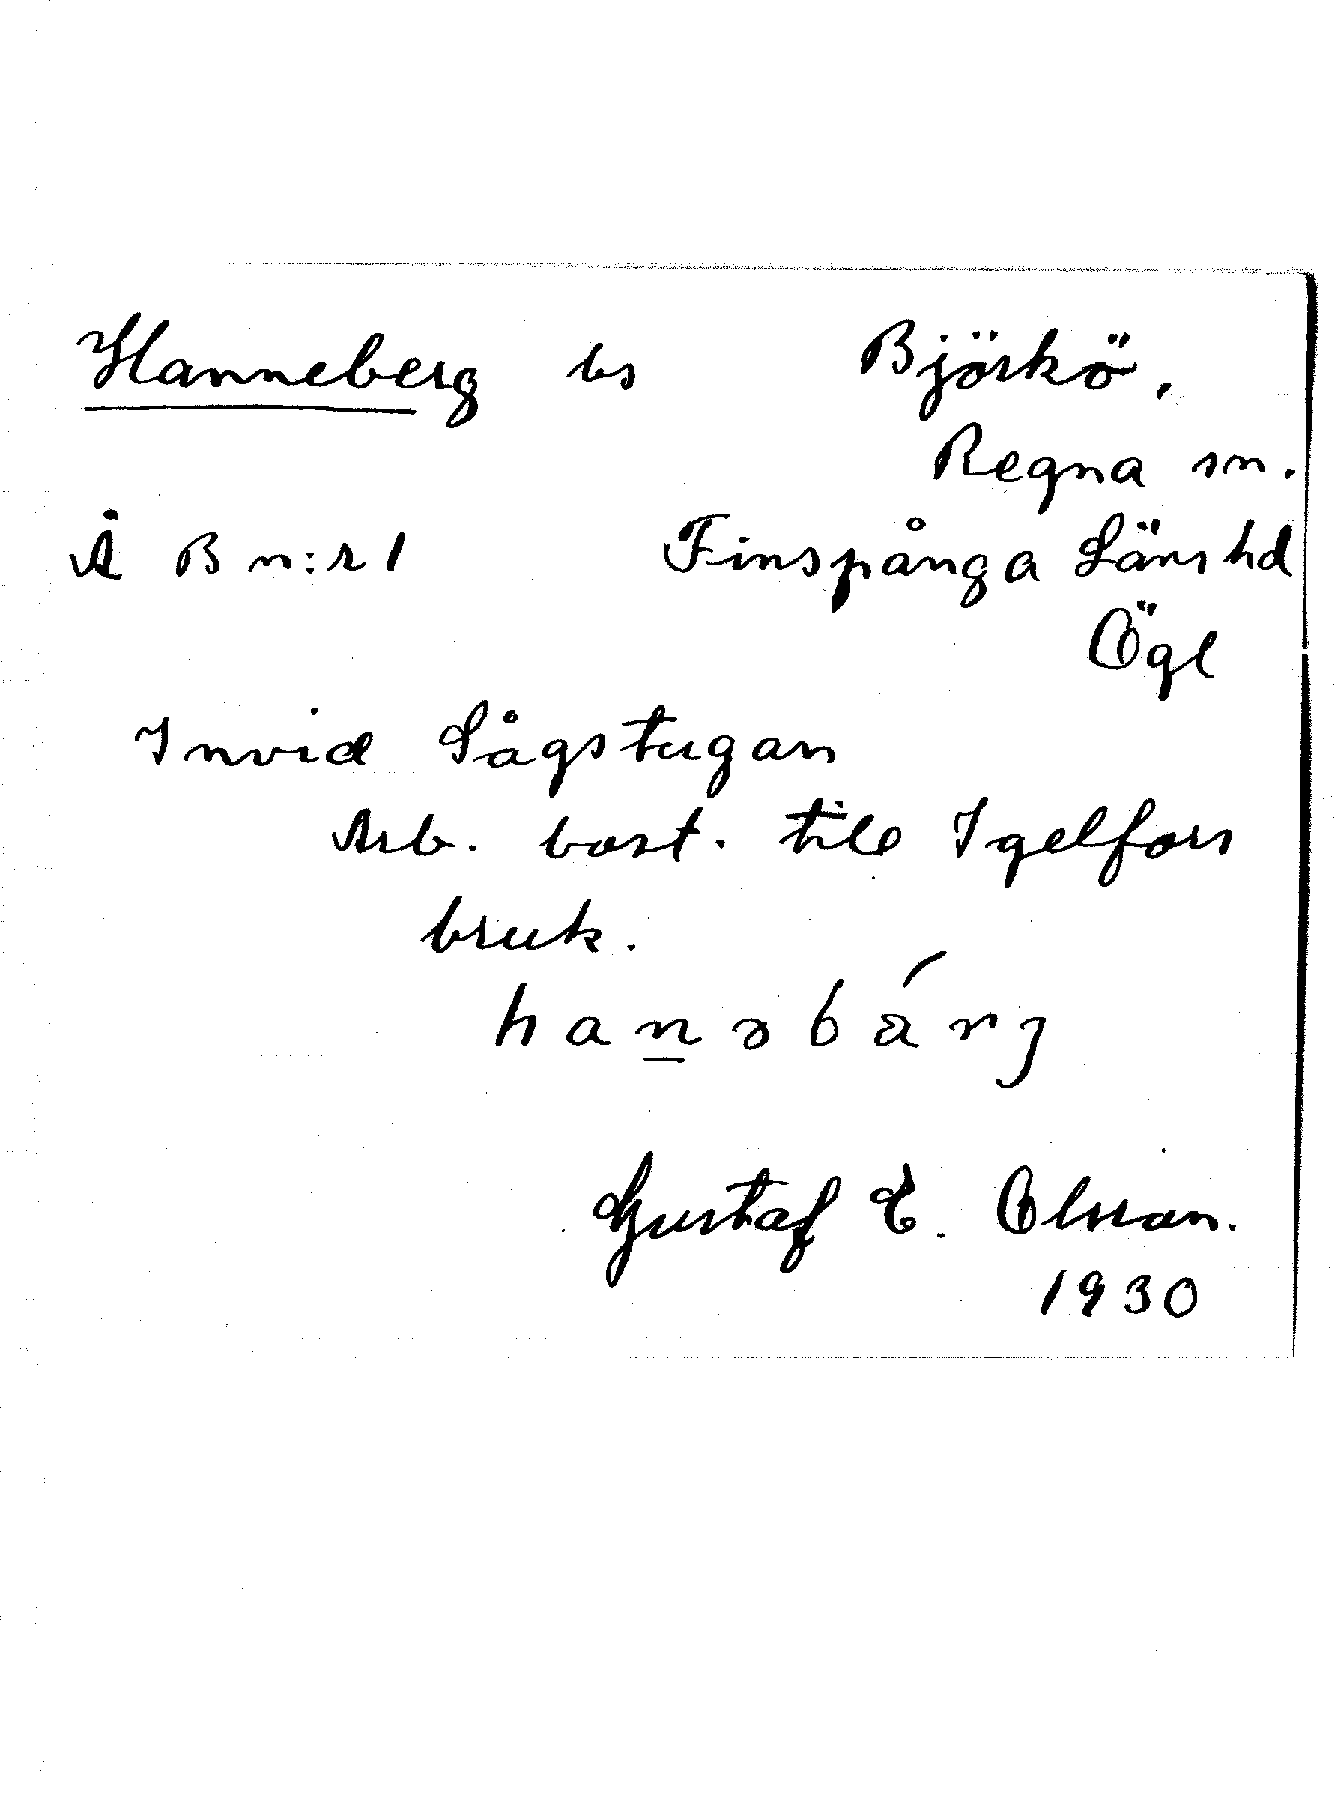 Hanneberg bs Björkö,
Regna sn.
Å B n:r 1 Finspånga Läns hd
Ögl
Invid Sågstugan
Arb. bost. till Igelfors
bruk.
hanəbárj
Gustaf E. Olsson.
1930